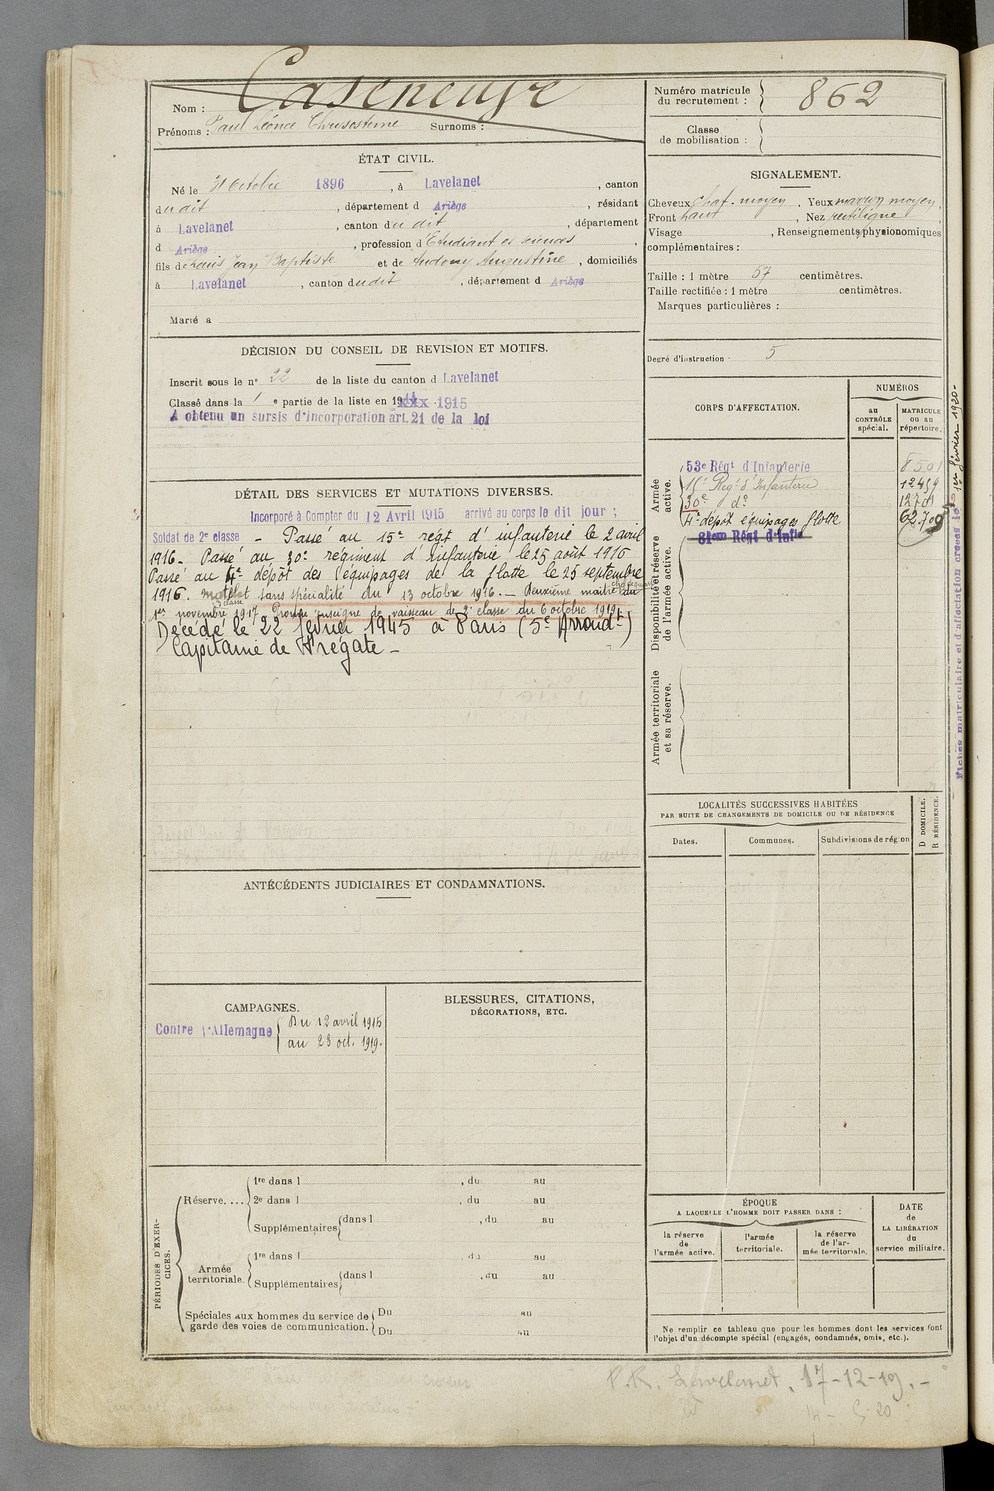 Nom : Caseneuve
Prénoms : Paul Léonce Chrysostome Surnoms :
Numéro matricule du recrutement : 862
Classe de mobilisation :
ÉTAT CIVIL.
Né le 31 Octobre 1896, à Lavelanet, canton
dudit, département d Ariège, résidant
à Lavelanet, canton dudit, département
d Ariège, profession d'Etudiant es sciences,
fils de Louis Jean Baptiste et de Audouy Augustine, domiciliés
à Lavelanet, canton dudit, département d Ariège
Marié à
SIGNALEMENT.
Cheveux chat. moyen, Yeux marron moyen,
Front haut, Nez rectiligne
Visage , Renseignements physionomiques
complémentaires :
Taille : 1 mètre 57 centimètres.
Taille rectifiée : 1 mètre centimètres.
Marques particulières :
Degré d'instruction : 5
DÉCISION DU CONSEIL DE REVISION ET MOTIFS.
Inscrit sous le n° 22 de la liste du canton d Lavelanet
Classé dans la 1e partie de la liste en 1915
A obtenu un sursis d'incorporation art. 21 de la loi
DÉTAIL DES SERVICES ET MUTATIONS DIVERSES.
Incorporé à Compter du 12 Avril 1915 arrivé au corps le dit jour ;
Soldat de 2e classe - Passé au 15e régt d'infanterie le 2 avril
1916. Passé au 30e régiment d'Infanterie le 25 août 1916
Passé au 4e dépôt des équipages de la flotte le 25 septembre
1916. matelot 3 classe sans spécialité du 13 octobre 1916. - Deuxième maître du
1er novembre 1917 Promu enseigne de vaisseau de 2e classe du 6 octobre 1919.
Décédé le 22 février 1945 à Paris (5e Arrondt)
Capitaine de Frégate -
CORPS D'AFFECTATION.
NUMÉROS
au CONTRÔLE spécial.
MATRICULE ou au répertoire.
Armée active.
53e Régt d'Infanterie 8501
15e Régt d'Infanterie 12459
30e d° 12701
4e dépôt équipages flotte 62709
81eme Régt d'Infie
Disponibilité et réserve de l'armée active.
Armée territoriale et sa réserve.
Fiches matriculaire et d'affectation créées le 1er février 1920-
LOCALITÉS SUCCESSIVES HABITÉES
PAR SUITE DE CHANGEMENTS DE DOMICILE OU DE RÉSIDENCE
Dates.
Communes.
Subdivisions de région
D DOMICILE.
R RÉSIDENCE.
ANTÉCÉDENTS JUDICIAIRES ET CONDAMNATIONS.
CAMPAGNES.
Contre l'Allemagne
Du 12 avril 1915
au 23 oct. 1919.
BLESSURES, CITATIONS,
DÉCORATIONS, ETC.
PÉRIODES D'EXERCICES.
Réserve....
1re dans l , du au
2e dans l , du au
Supplémentaires dans l , du au
Armée territoriale.
1re dans l , du au
Supplémentaires dans l , du au
Spéciales aux hommes du service de garde des voies de communication.
Du au
Du au
ÉPOQUE
A LAQUELLE L'HOMME DOIT PASSER DANS :
la réserve de l'armée active.
l'armée territoriale.
la réserve de l'armée territoriale.
DATE de LA LIBÉRATION du service militaire.
Ne remplir ce tableau que pour les hommes dont les services font
l'objet d'un décompte spécial (engagés, condamnés, omis, etc.).
P.R. Lavelanet, 17-12-19. -